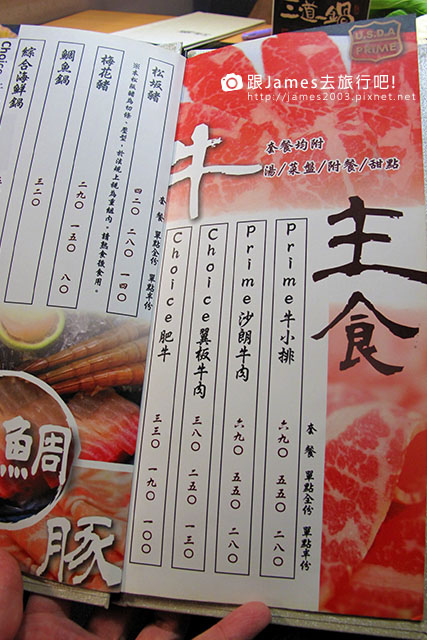 三道一鍋
U.S.D.A
PRIME
跟James去旅行吧!
http://james2003.pixnet.net
牛
套餐均附
湯/菜盤/附餐/甜點
主食
套餐 單點全份 單點半份
Prime牛小排 六九〇 五五〇 二八〇
Prime沙朗牛肉 六九〇 五五〇 二八〇
Choice翼板牛肉 三八〇 二五〇 一三〇
Choice肥牛 三三〇 一九〇 一〇〇
套餐 單點全份 單點半份
松坂豬 四二〇 二八〇 一四〇
※本松坂豬為切條、壓型,於法規上視為重組肉。請熟食後食用。
梅花豬 二九〇 一五〇 八〇
鯛魚鍋
綜合海鮮鍋 三二〇
Choice
鯛
豚